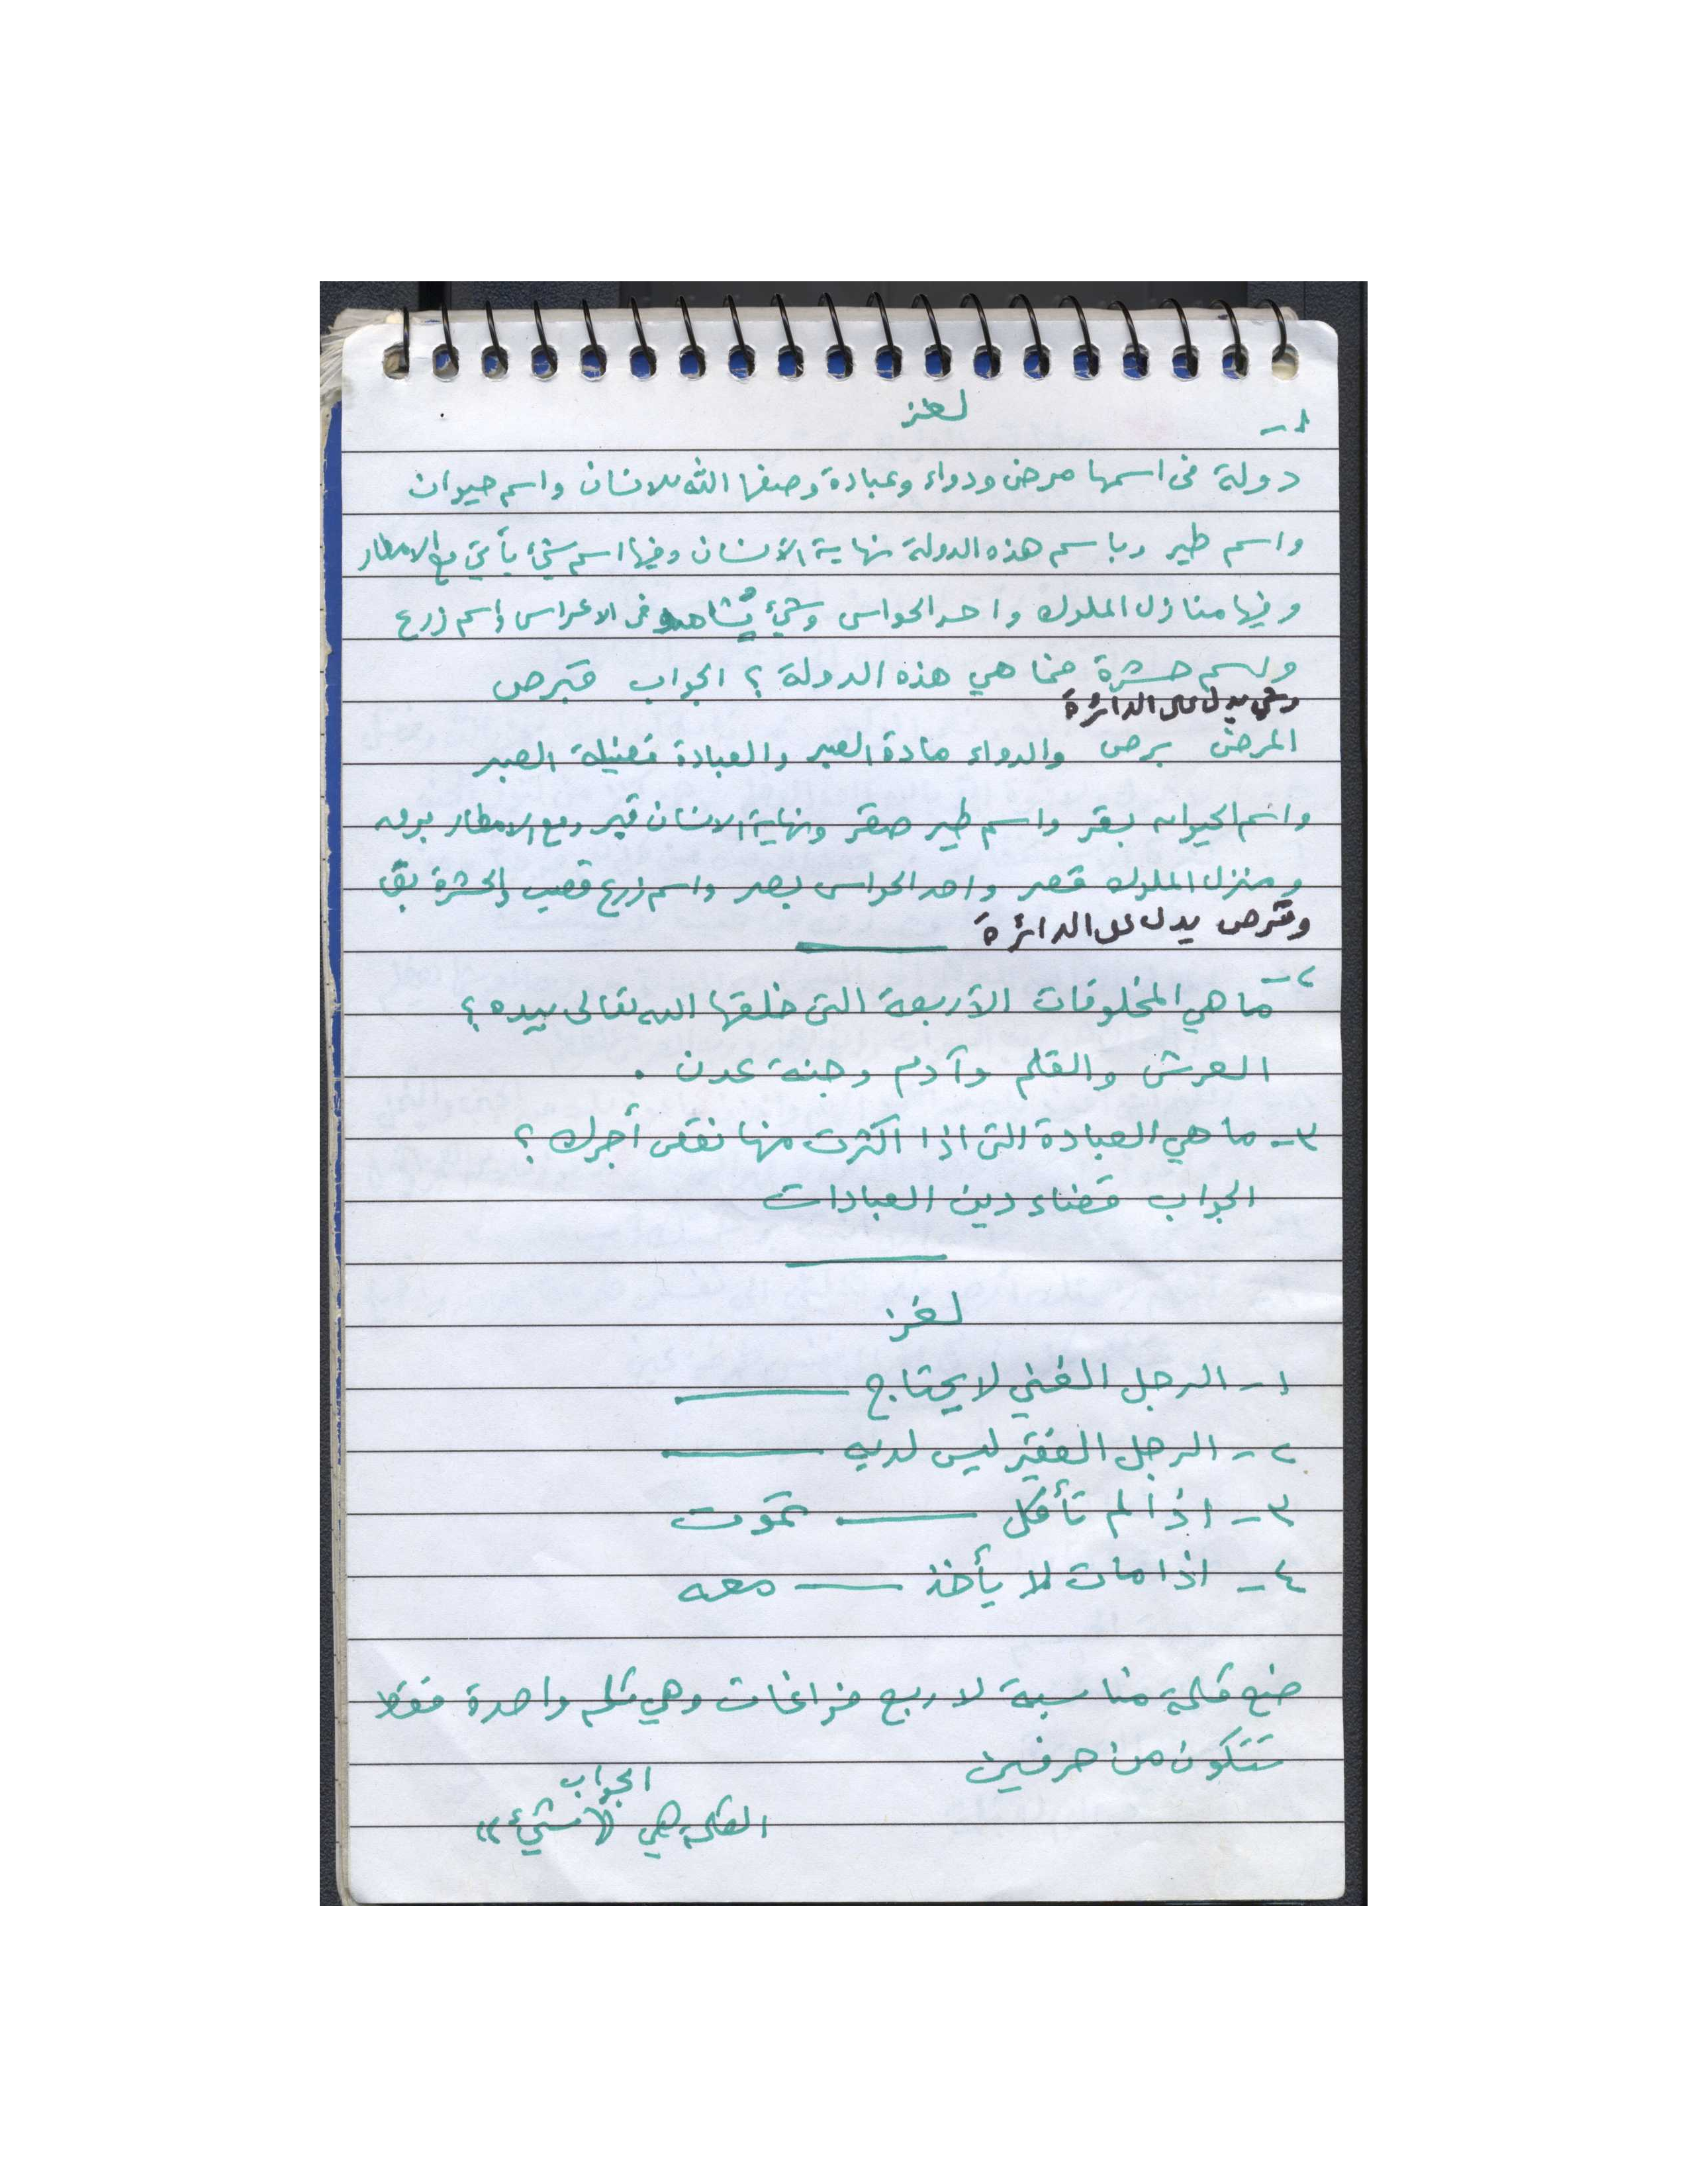 لغز
١-
دولة في اسمها مرض ودواء وعبادة وصفها الله للانسان واسم حيوان
واسم طير وباسم هذه الدولة نهاية الأنسان وفيها اسم شيئ يأتي مع الامطار
وفيها منازل الملوك واحد الحواس وشيئ يُشاهد في الاعراس واسم زرع
واسم حشرة فما هي هذه الدولة ؟ الجواب قبرص
وشي يدل على الدائرة
المرض برص والدواء مادة الصبر والعبادة فضيلة الصبر
واسم الحيوان بقر واسم طير صقر ونهاية الانسان قبر ومع الامطار برق
ومنزل الملوك قصر واحد الحواس بصر واسم زرع قصب والحشرة بق
وقرص يدل على الدائرة
٢- ما هي المخلوقات الأربعة التي خلقها الله تعالى بيده ؟
العرش والقلم وآدم وجنة عدن .
٣- ما هي العبادة التي اذا اكثرت منها نقص أجرك ؟
الجواب قضاء دين العبادات
لغز
١- الرجل الغني لا يحتاج ـــــــ
٢- الرجل الفقير ليس لديه ـــــــ
٣- اذا لم تأكل ـــــــ تموت
٤- اذا مات لا يأخذ ـــــــ معه
ضع كلمة مناسبة لاربع فراغات وهي كلم واحدة فقط
تتكون من حرفين
الجواب
الكلمة هي «شيئ»